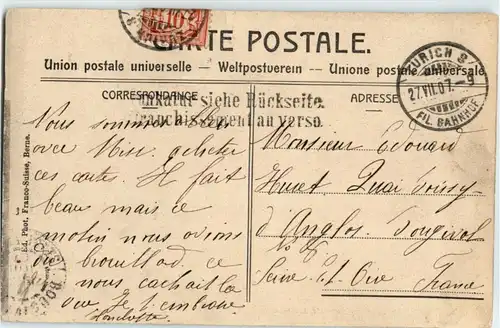 CARTE POSTALE.
Union postale universelle — Weltpostverein — Unione postale universale
CORRESPONDANCE
ADRESSE
siehe Rückseite.
Franchissement au verso.
ZÜRICH 8
27.VII.07. - 9
FIL. BAHNHOF
10
Ed. Phot. Franco-Suisse, Berne.
Vous sommes
avec Miss. acheter
ces cartes. Il fait
beau mais ce
matin nous avions
du brouillard ce
nous cachait la
vue Je t'embrasse
Monsieur Edouard
Huet Quai Boissy
d'Anglas Bougival
Seine et Oise France